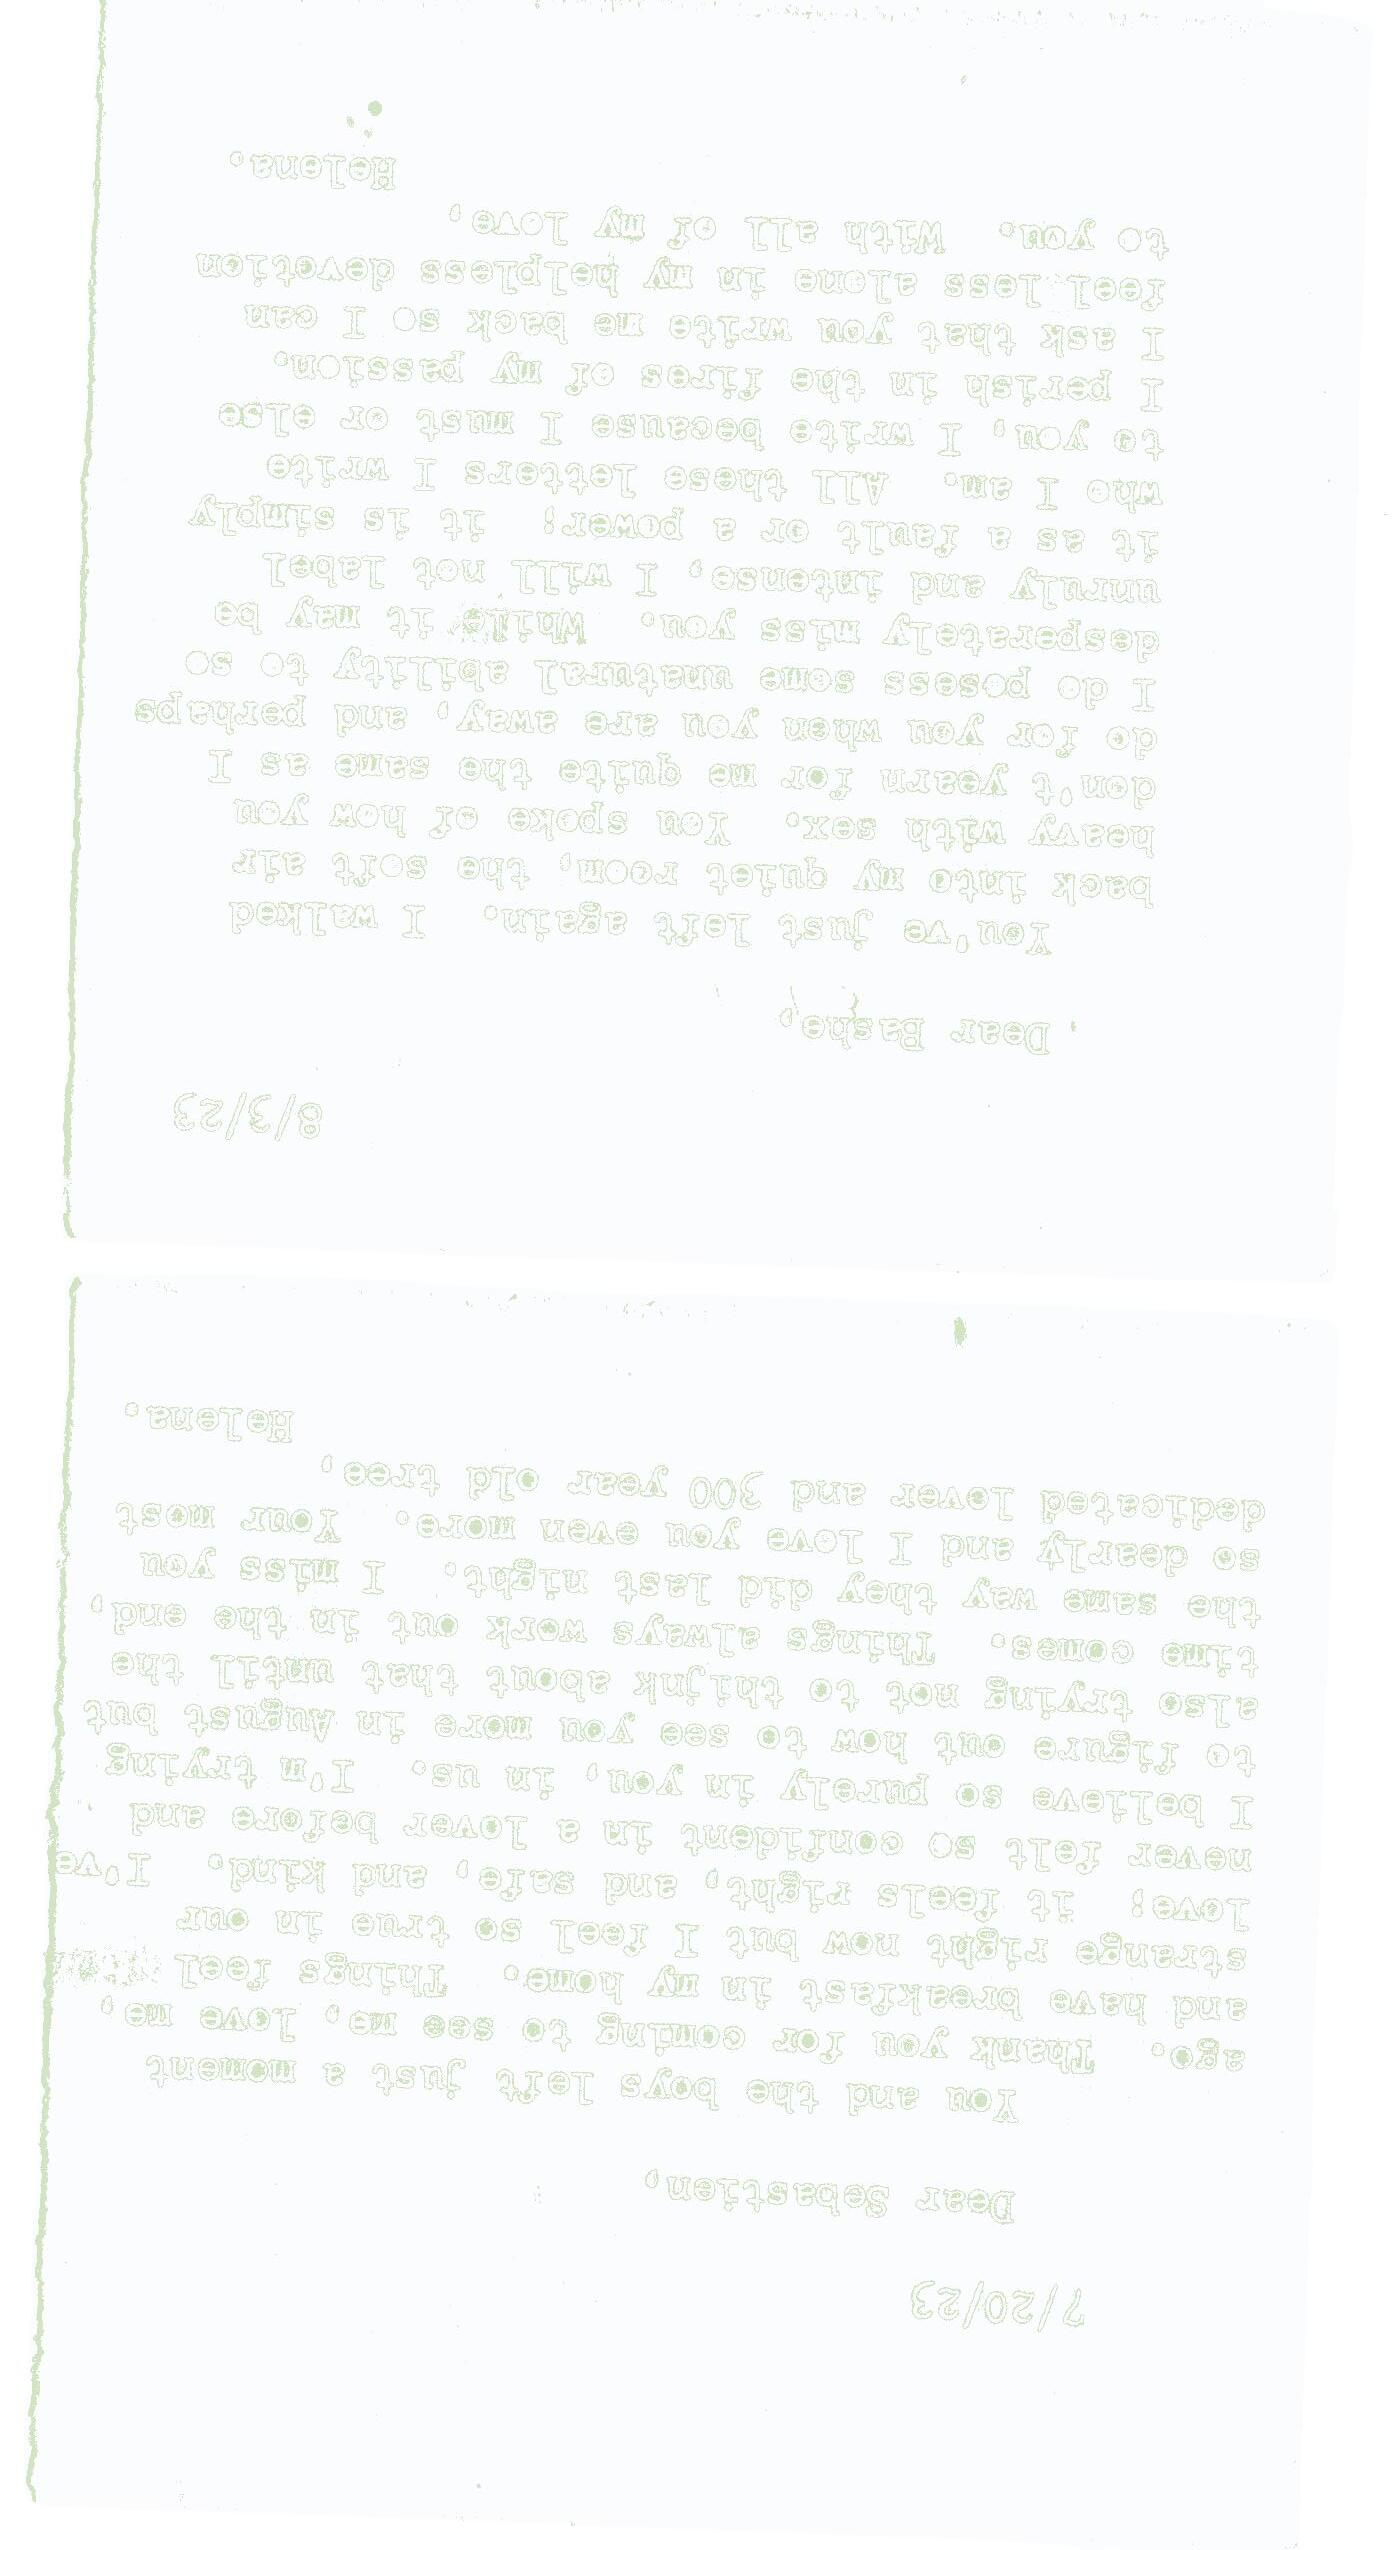 7/20/23
Dear Sebastien,
You and the boys left just a moment
ago.  Thank you for coming to see me, love me,
and have breakfast in my home.  Things feel
strange right now but I feel so true in our
love; it feels right, and safe, and kind.  I've
never felt so confident in a lover before and
I believe so purely in you, in us.  I'm trying
to figure out how to see you more in August but
also trying not to thijnk about that until the
time comes.  Things always work out in the end,
the same way they did last night.  I miss you
so dearly and I love you even more.  Your most
dedicated lover and 300 year old tree,
Helena.
8/3/23
Dear Bashe,
You've just left again.  I walked
back into my quiet room, the soft air
heavy with sex.  You spoke of how you
don't yearn for me quite the same as I
do for you when you are away, and perhaps
I do posess some unatural ability to so
desperately miss you.  While it may be
unruly and intense, I will not label
it as a fault or a power; it is simply
who I am.  All these letters I write
to you, I write because I must or else
I perish in the fires of my passion.
I ask that you write me back so I can
feel less alone in my helpless devotion
to you.  With all of my love,
Helena.